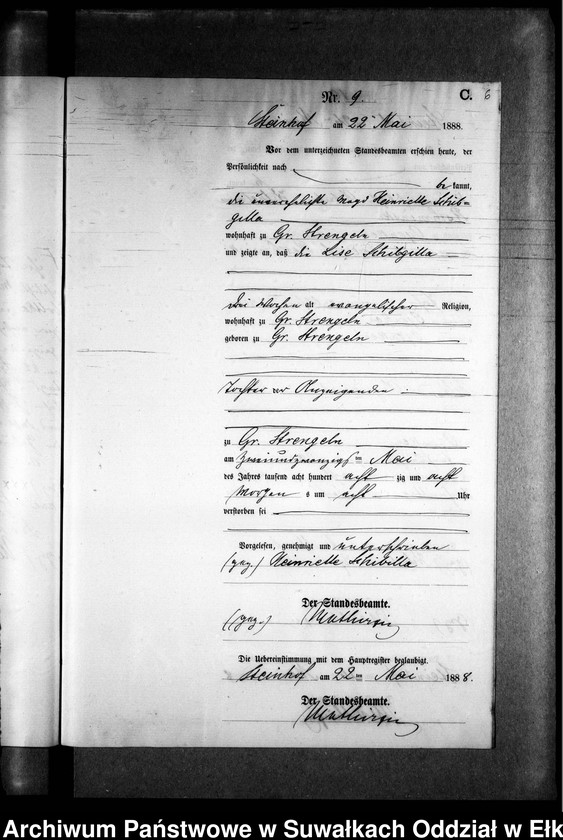 Nr. 9. C. 6
Steinhof am 22ten Mai 1888.
Vor dem unterzeichneten Standesbeamten erschien heute, der
Persönlichkeit nach
be kannt,
die unverehelichte Magd Heinriette Schib=
gilla
wohnhaft zu Gr. Strengeln
und zeigte an, daß die Lise Schibgilla
drei Wochen alt evangelischer Religion,
wohnhaft zu Gr. Strengeln
geboren zu Gr. Strengeln
Tochter der Anzeigenden
zu Gr. Strengeln
am zweiundzwanzigsten Mai
des Jahres tausend acht hundert acht zig und acht
Morgens um acht Uhr
verstorben sei
Vorgelesen, genehmigt und unterschrieben
(gez.) Heinriette Schibilla
Der Standesbeamte.
(gez.)
Die Uebereinstimmung mit dem Hauptregister beglaubigt.
Steinhof am 22ten Mai 1888.
Der Standesbeamte.
Archiwum Państwowe w Suwałkach Oddział w Ełk